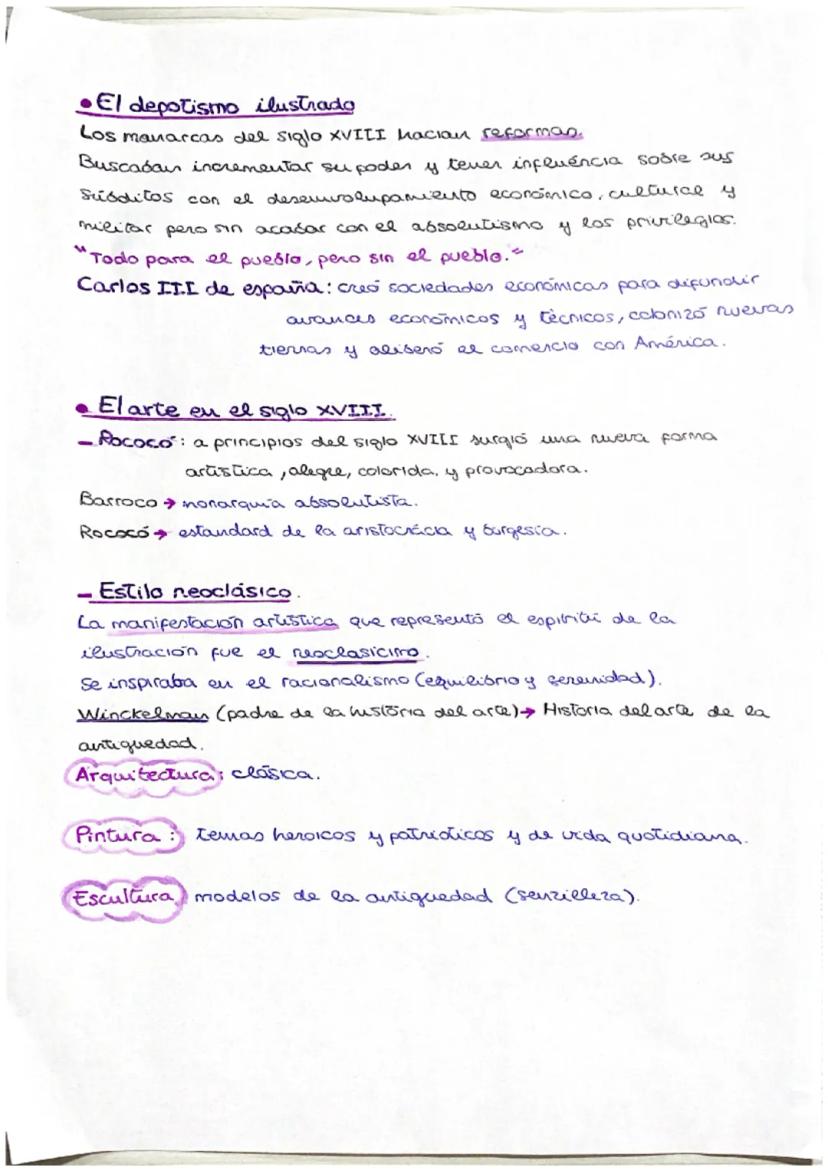 • El depotismo ilustrado
Los monarcas del siglo XVIII hacian reformas.
Buscaban incrementar su poder y tener influéncia sobre sus
súbditos con el desenvolupamiento económico, cultural y
militar pero sin acabar con el absolutismo y los privilegios.
"Todo para el pueblo, pero sin el pueblo."
Carlos III de españa: creó sociedades económicas para difundir
avances económicos y técnicos, colonizó nuevas
tierras y aliberó el comercio con América.
• El arte en el siglo XVIII.
- Rococó: a principios del siglo XVIII surgió una nueva forma
artística, alegre, colorida, y provocadora.
Barroco → monarquía absolutista.
Rococó → estandard de la aristocrácia y burgesía.
- Estilo neoclásico.
La manifestación artística que representó el espíriti de la
ilustración fue el neoclasicimo.
Se inspiraba en el racionalismo (equilibrio y serenidad).
Winckelman (padre de la história del arte) → Historia del arte de la
antiguedad.
Arquitectura: clásica.
Pintura: temas heroicos y patrioticos y de vida quotidiana.
Escultura modelos de la antiguedad (senzilleza).